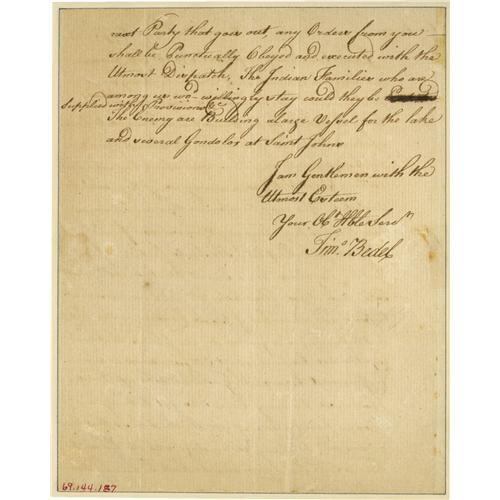 next Party that goes out, any Orders from you
shall be Punctually Obeyed and executed with the
Utmost Dispatch, The Indian Families who are
among us wod willingly stay could they be
Supplied with Provisions &c
The Enemy are Building a large Vessel for the lake
and several Gondolas at Saint Johns
I am Gentlemen with the
Utmost Esteem
Your Obt Hble Servn
Timo Bedel
69.144.187